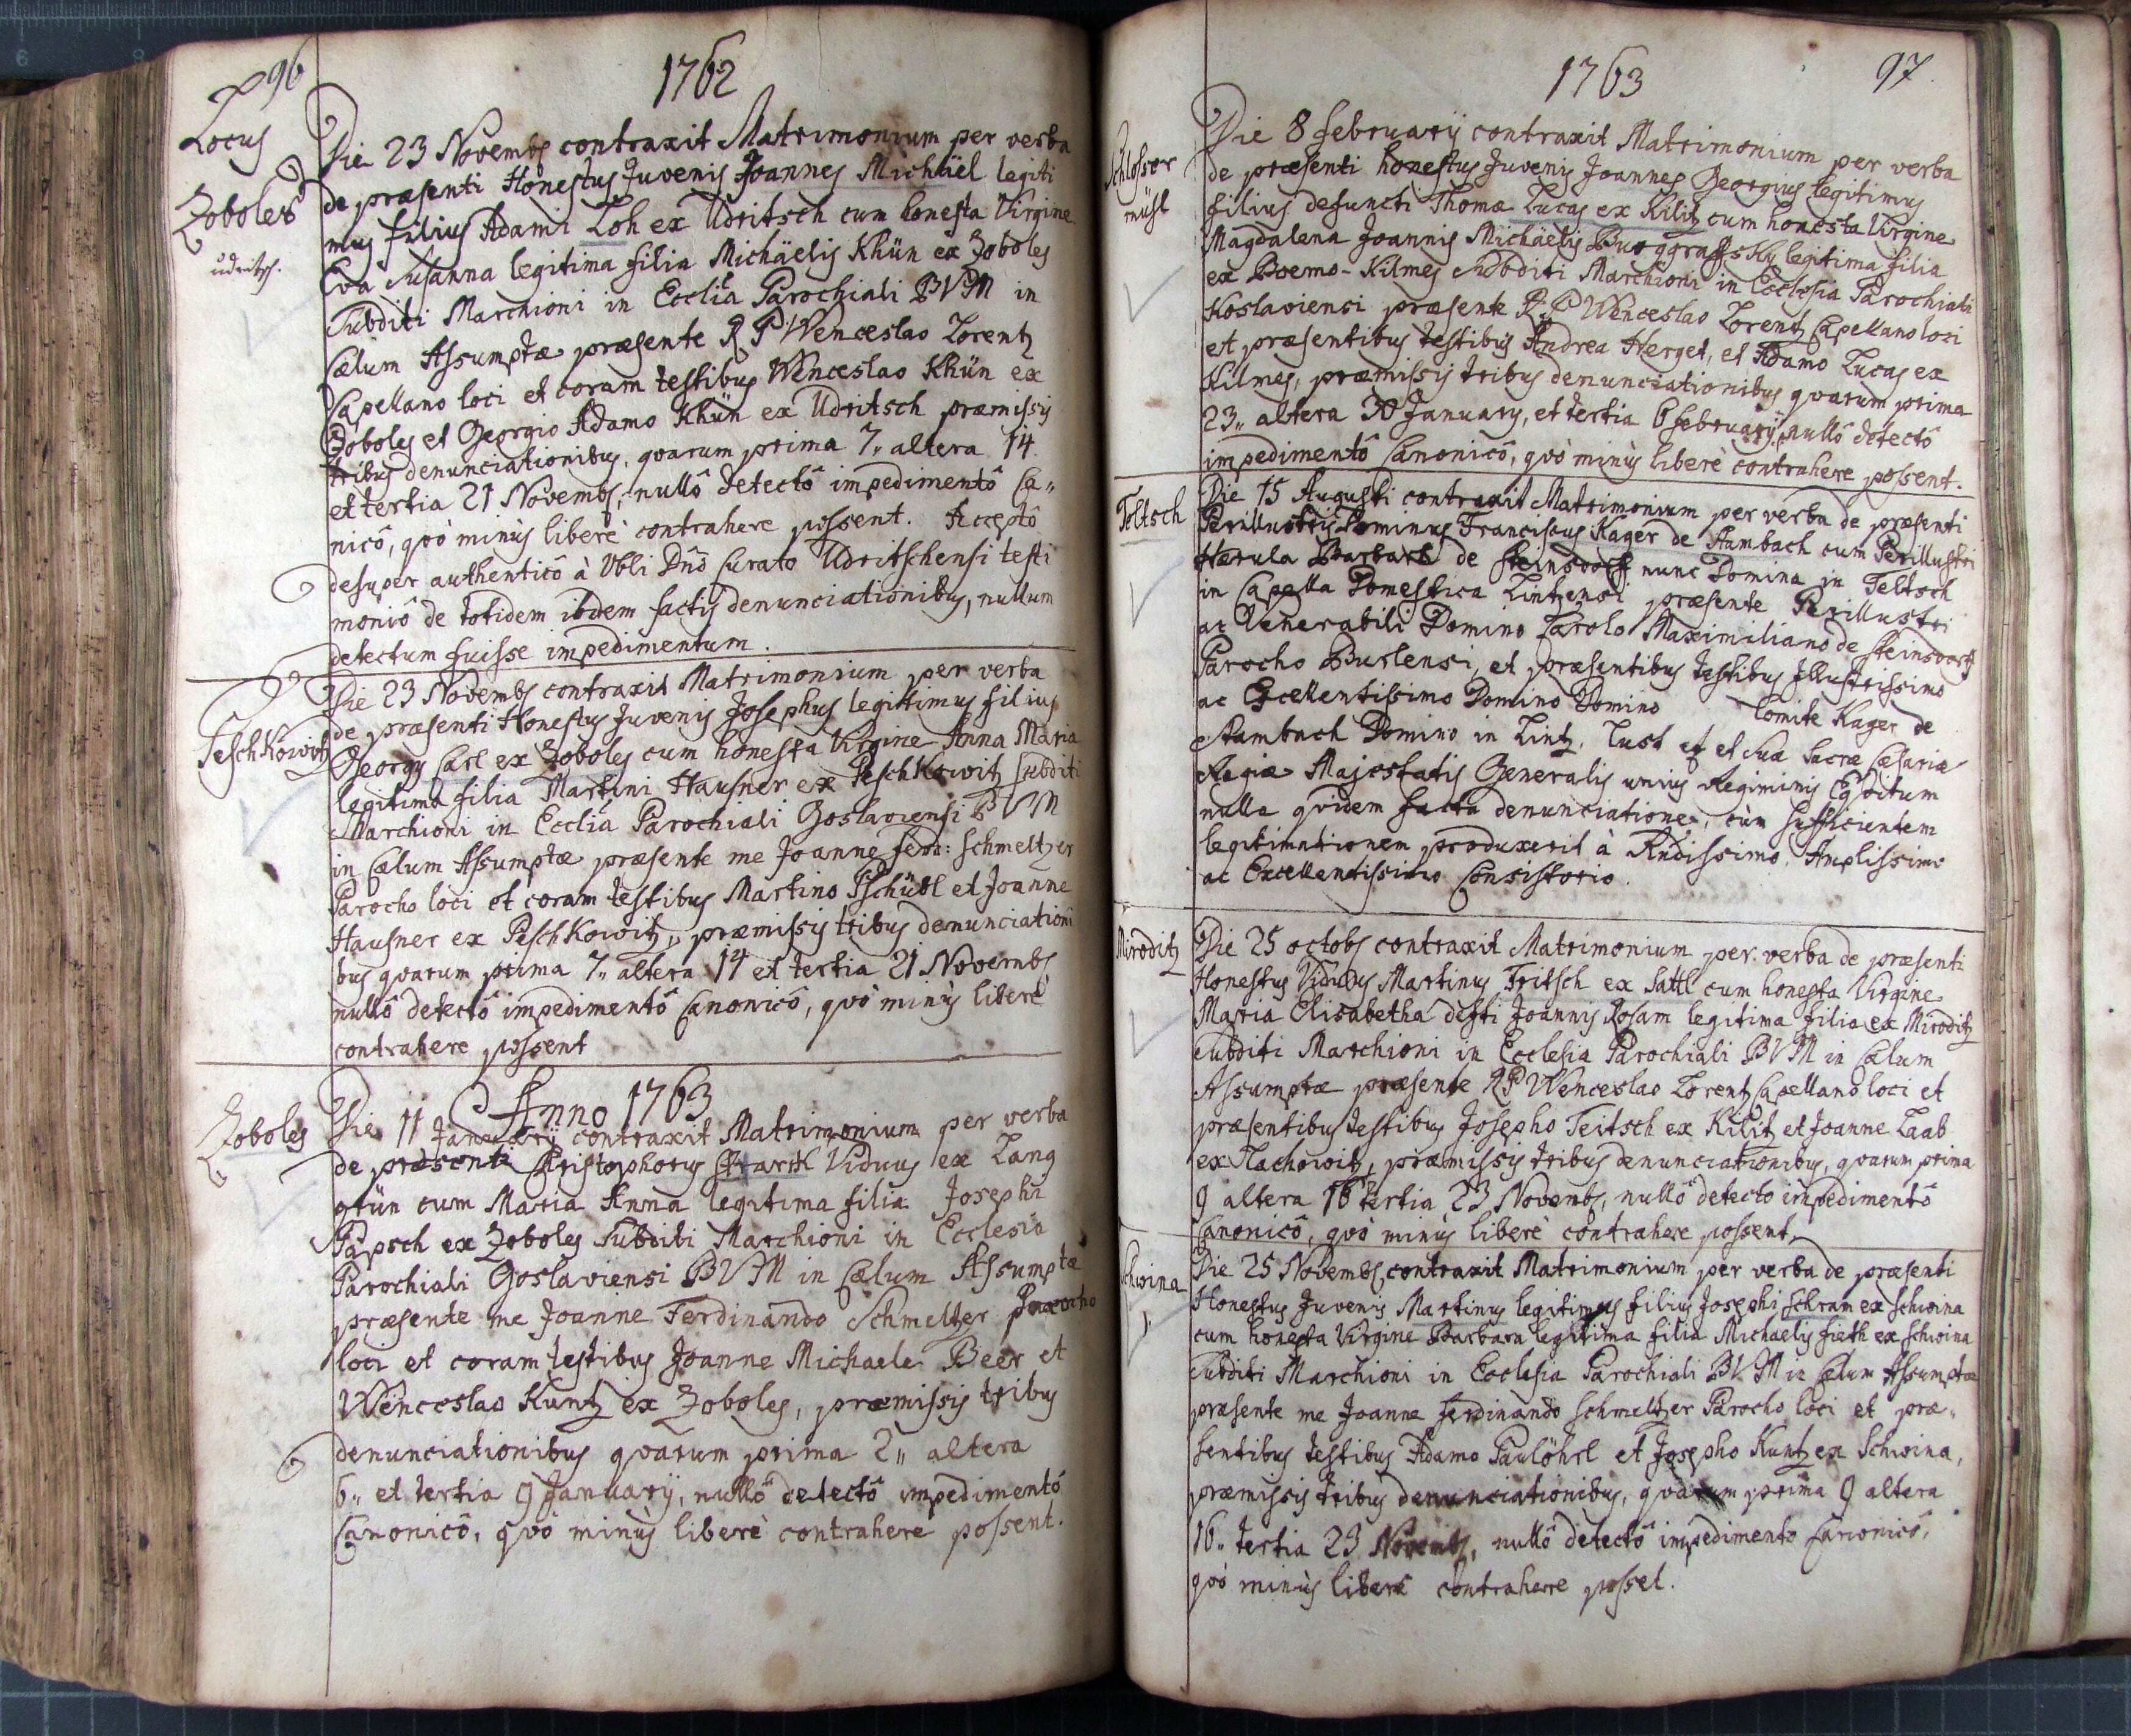 96
1762
Locus
Zoboles
udritsch.
Die 23 Novembr contraxit Matrimonium per verba
de præsenti Honestus Juvenis Joannes Michäel legiti
mus filius Adami Loh ex Udritsch cum honesta Virgine
Eva Susanna legitima filia Michäelis Khün ex Zoboles
Subditi Marchioni in Ecclia Parochiali BVM in
Cælum Assumptæ præsente R P Wenceslao Lorentz
Capellano loci et coram testibus Wenceslao Khün ex
Zoboles et Georgio Adamo Khün ex Udritsch præmissis
tribus denunciationibus, qvarum prima 7„ altera 14.
et tertia 21 Novembr, nullô detectô impedimentô Ca„
nicô, qvò minùs liberè contrahere possent. Acceptô
desuper authenticô à Vbli Dnô Curato Udritschensi testi
moniô de totidem ibidem factis denunciationibus, nullum
detectum fuisse impedimentum.
Teschkowitz
Die 23 Novembr contraxit Matrimonium per verba
de præsenti Honestus Juvenis Josephus legittimus filius
Georgy Carl ex Zoboles cum honesta Virgine Anna Maria
legitima filia Martini Hausner ex Peschkowitz Subditi
Marchioni in Ecclia Parochiali Goslaviensi BVM
in Cælum Assumptæ præsente me Joanne Ferd: Schmeltzer
Parocho loci et coram testibus Martino Pschübl et Joanne
Hausner ex Peschkowitz„ præmissis tribus denunciationi
bus qvarum prima 7„ altera 14 et tertia 21 Novembr,
nullô detectô impedimentô Canonicô, qvò minùs liberè
contrahere possent
Anno 1763
Zoboles
Die 11 January contraxit Matrimonium per verba
de præsenti Christophorus Starck Viduus ex Lang
grün cum Maria Anna legitima filia Josephi
Päpsch ex Zoboles Subditi Marchioni in Ecclesia
Parochiali Goslaviensi BVM in Cælum Assumptæ
præsente me Joanne Ferdinando Schmeltzer Parocho
loci et coram testibus Joanne Michaele Beer et
Wenceslao Kuntz ex Zoboles, præmissis tribus
denunciationibus qvarum prima 2„ altera
6„ et tertia 9 January, nullô detectô impedimentô
Canonicô, qvò minùs liberè contrahere possent.
1763
97.
Schlosser
mühl
Die 8 february contraxit Matrimonium per verba
de præsenti honestus Juvenis Joannes Georgius legitimus
filius defuncti Thomæ Lucas ex Kilitz cum honesta Virgine
Magdalena Joannis Michäelis Burggraffsky legitima filia
ex Boemo-Kilmes Subditi Marchioni in Ecclesia Parochiali
Koslaviensi præsente R. P Wenceslao Lorentz Capellano loci
et præsentibus testibus Andrea Herget, et Adamo Lucas ex
Kilmes, præmissis tribus denunciationibus qvarum prima
23„ altera 30 January, et tertia 6 february, nullô detectô
impedimentô Canonicô, qvò minùs liberè contrahere possent.
Teltsch
Die 15 Augusti contraxit Matrimonium per verba de præsenti
Perillustris Dominus Franciscus Kager de Stambach cum Perillustri
Hærula Barbara de Steinsdorff nunc Domina in Teltsch
in Capella Domestica Lintzensi præsente Perillustri
ac Venerabili Domino Carolo Maximiliano de Steinsdorff
Parocho Buslensi, et præsentibus testibus Illustrissimo
ac Excellentissimo Domino Domino Comite Kager de
Stambach Domino in Lintz, Lust et et Sua Sacræ Cæsariæ
Regiæ Majestatis Generalis unius Regiminis Eqvitum
nulla qvidem facta denunciatione, cùm sufficientem
legitimationem produxerit à Rndissimo, Amplissimo
ac Excellentissimo Consistorio.
Miroditz
Die 25 octobr contraxit Matrimonium per verba de præsenti
Honestus Viduus Martinus Fritsch ex Sattl cum honesta Virgine
Maria Elisabetha defti Joannis Rosam legitima filia ex Miroditz
Subditi Marchioni in Ecclesia Parochiali BVM in Cælum
Assumptæ præsente RP Wenceslao Lorentz Capellano loci et
præsentibus testibus Josepho Teitsch ex Kilitz et Joanne Laab
ex Lachowitz, præmissis tribus denunciationibus, qvarum prima
9 altera 16 tertia 23 Novembr, nullô detecto impedimentô
Canonicô, qvò minùs liberè contrahere possent.
Schwina
Die 25 Novembr contraxit Matrimonium per verba de præsenti
Honestus Juvenis Martinus legitimus filius Josephi Schram ex Schwina
cum honesta Virgine Barbara legitima filia Michaelis Fieth ex Schwina
Subditi Marchioni in Ecclesia Parochiali BVM in Cælum Assumptæ
præsente me Joanne Ferdinando Schmeltzer Parocho loci et præ„
sentibus testibus Adamo Paulöhrl et Josepho Kuntz ex Schwina,
præmissis tribus denunciationibus, qvarum prima 9 altera
16„ tertia 23 Novembr, nullô detectô impedimento Canonicô,
qvò minùs liberè contrahere posset.